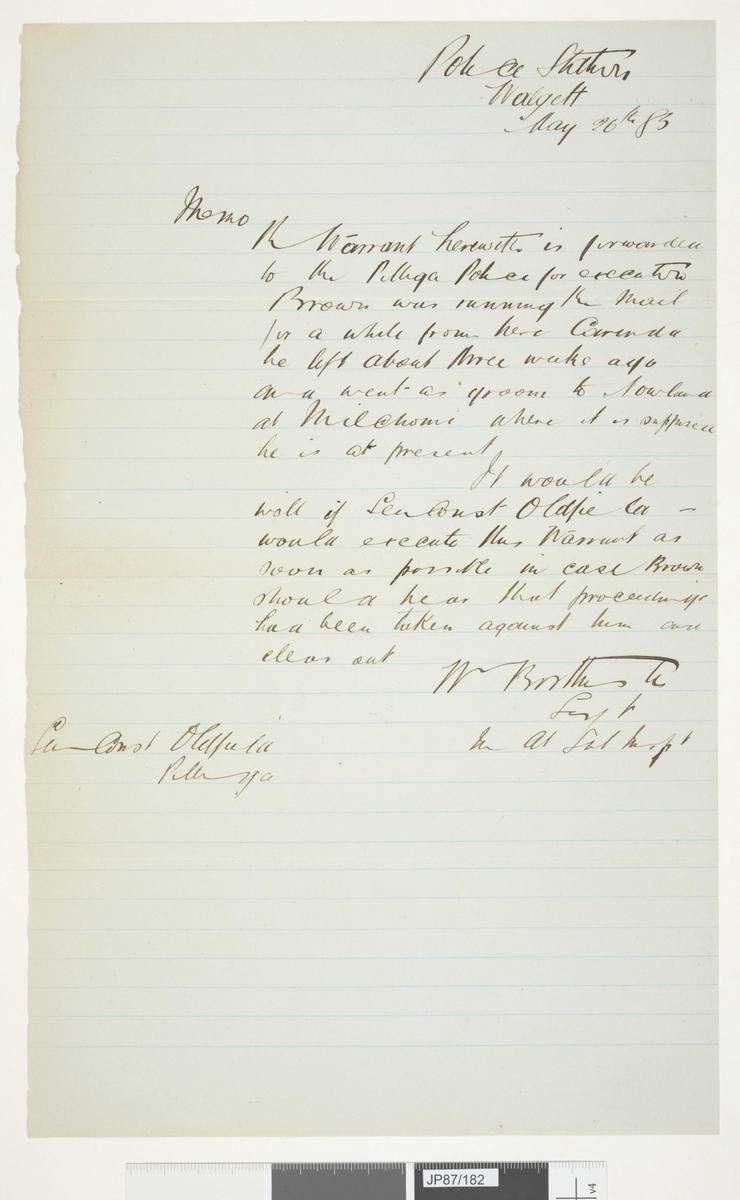 Police Station
Walgett
May 20th 83
Memo
The Warrant herewith is forwarded
to the Pilliga Police for execution
Brown was running the Mail
for a while from here Carinda
he left about three weeks ago
and went as groom to Nowland
at Milchomi where it is supposed
he is at present
It would be
well if Sen Const Oldfield –
would execute this Warrant as
soon as possible in case Brown
should hear that proceedings
had been taken against him and
clear out
Wm
Sergt
Sen Const Oldfield
Pilliga
JP87/182
v4